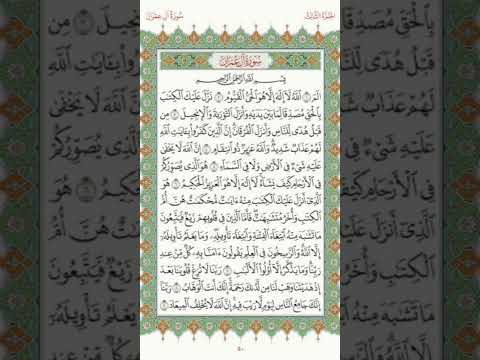 سُورَةُ آلِ عِمْرَانَ
الجُزْءُ الثَّالِثُ
سُورَةُ آلِ عِمْرَانَ
بِسْمِ اللَّهِ الرَّحْمَٰنِ الرَّحِيمِ
الٓمٓ ١ ٱللَّهُ لَآ إِلَٰهَ إِلَّا هُوَ ٱلْحَىُّ ٱلْقَيُّومُ ٢ نَزَّلَ عَلَيْكَ ٱلْكِتَٰبَ
بِٱلْحَقِّ مُصَدِّقًا لِّمَا بَيْنَ يَدَيْهِ وَأَنزَلَ ٱلتَّوْرَىٰةَ وَٱلْإِنجِيلَ ٣ مِن
قَبْلُ هُدًى لِّلنَّاسِ وَأَنزَلَ ٱلْفُرْقَانَ إِنَّ ٱلَّذِينَ كَفَرُوا۟ بِـَٔايَٰتِ ٱللَّهِ
لَهُمْ عَذَابٌ شَدِيدٌ وَٱللَّهُ عَزِيزٌ ذُو ٱنتِقَامٍ ٤ إِنَّ ٱللَّهَ لَا يَخْفَىٰ
عَلَيْهِ شَىْءٌ فِى ٱلْأَرْضِ وَلَا فِى ٱلسَّمَآءِ ٥ هُوَ ٱلَّذِى يُصَوِّرُكُمْ
فِى ٱلْأَرْحَامِ كَيْفَ يَشَآءُ لَآ إِلَٰهَ إِلَّا هُوَ ٱلْعَزِيزُ ٱلْحَكِيمُ ٦ هُوَ
ٱلَّذِىٓ أَنزَلَ عَلَيْكَ ٱلْكِتَٰبَ مِنْهُ ءَايَٰتٌ مُّحْكَمَٰتٌ هُنَّ أُمُّ
ٱلْكِتَٰبِ وَأُخَرُ مُتَشَٰبِهَٰتٌ فَأَمَّا ٱلَّذِينَ فِى قُلُوبِهِمْ زَيْغٌ فَيَتَّبِعُونَ
مَا تَشَٰبَهَ مِنْهُ ٱبْتِغَآءَ ٱلْفِتْنَةِ وَٱبْتِغَآءَ تَأْوِيلِهِۦ وَمَا يَعْلَمُ تَأْوِيلَهُۥٓ
إِلَّا ٱللَّهُ وَٱلرَّٰسِخُونَ فِى ٱلْعِلْمِ يَقُولُونَ ءَامَنَّا بِهِۦ كُلٌّ مِّنْ عِندِ
رَبِّنَا وَمَا يَذَّكَّرُ إِلَّآ أُو۟لُوا۟ ٱلْأَلْبَٰبِ ٧ رَبَّنَا لَا تُزِغْ قُلُوبَنَا بَعْدَ
إِذْ هَدَيْتَنَا وَهَبْ لَنَا مِن لَّدُنكَ رَحْمَةً إِنَّكَ أَنتَ ٱلْوَهَّابُ ٨ رَبَّنَآ
إِنَّكَ جَامِعُ ٱلنَّاسِ لِيَوْمٍ لَّا رَيْبَ فِيهِ إِنَّ ٱللَّهَ لَا يُخْلِفُ ٱلْمِيعَادَ ٩
٥٠